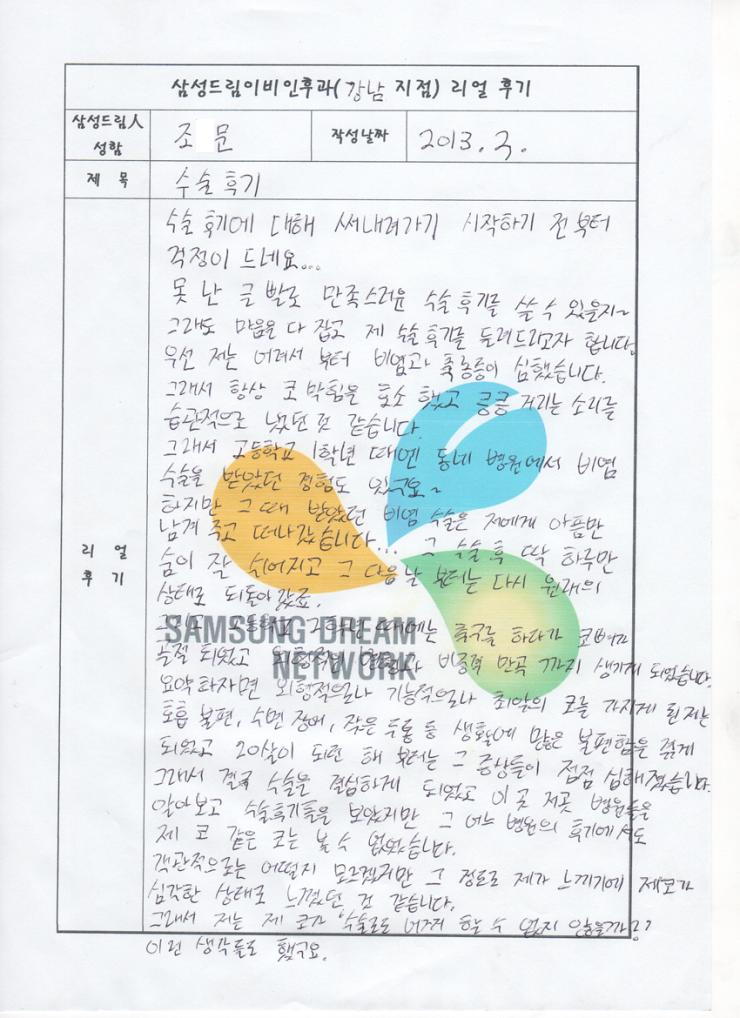 삼성드림이비인후과(강남 지점) 리얼 후기
삼성드림人 성함
조 문
작성날짜
2013. 2.
제 목
수술 후기
리 얼 후 기
수술 후기에 대해 써내려가기 시작하기 전부터
걱정이 드네요...
못난 글빨로 만족스러운 수술후기를 쓸 수 있을지~
그래도 마음을 다 잡고 제 수술후기를 들려드리고자 합니다.
우선 저는 어려서 부터 비염과 축농증이 심했습니다.
그래서 항상 코 막힘을 호소 했고 킁킁 거리는 소리를
습관적으로 냈던 것 같습니다.
그래서 고등학교 1학년 때엔 동네 병원에서 비염
수술을 받았던 경험도 있구요~
하지만 그 때 받았던 비염 수술은 저에게 아픔만
남겨 주고 떠나갔습니다... 그 수술 후 딱 하루만
숨이 잘 쉬어지고 그 다음날 부터는 다시 원래의
상태로 되돌아 갔죠.
SAMSUNG DREAM
NETWORK
고등학교 때에는 축구를 하다가 코뼈가
골절 되었고 비중격 만곡 까지 생기게 되었습니다.
요약하자면 외형적으로나 기능적으로나 최악의 코를 가지게 된 저는
호흡 불편, 수면 장애, 잦은 두통 등 생활에 많은 불편함을 겪게
되었고 20살이 되던 해 부터는 그 증상들이 점점 심해졌습니다.
그래서 결국 수술을 결심하게 되었고 이곳 저곳 병원들을
알아보고 수술후기들을 보았지만 그 어느 병원의 후기에서도
제 코 같은 코는 볼 수 없었습니다.
객관적으로는 어떨지 모르겠지만 그 정도로 제가 느끼기에 제코가
심각한 상태로 느꼈던 것 같습니다.
그래서 저는 제 코가 '수술로도 어쩌 할 수 없지 않을까?'
이런 생각들도 했구요.